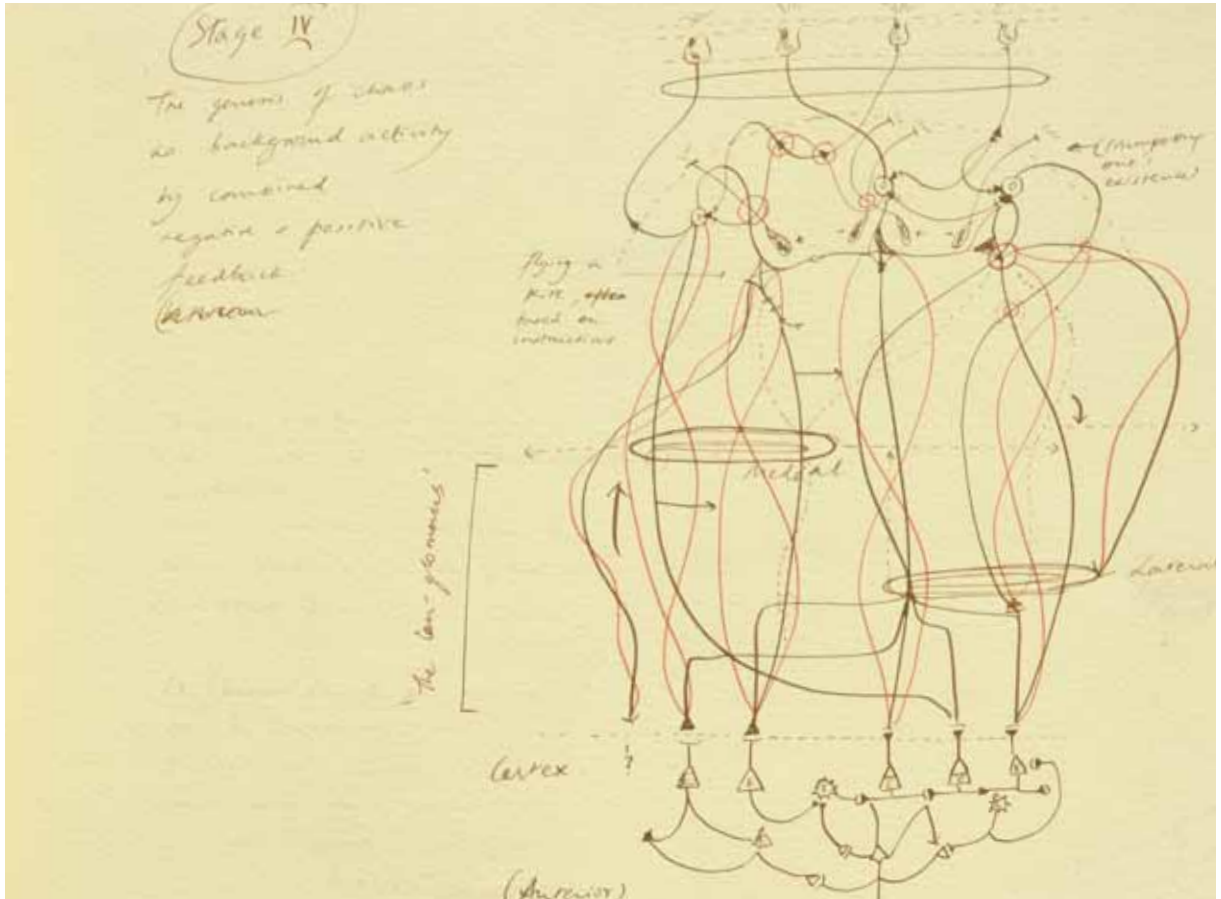 Stage IV
The genesis of chaos
as background activity
by combined
negative & positive
feedback
flying a
kite, often
based on
instructions
one's
existence)
Medial
Lateral
Cortex
?
(Anterior)